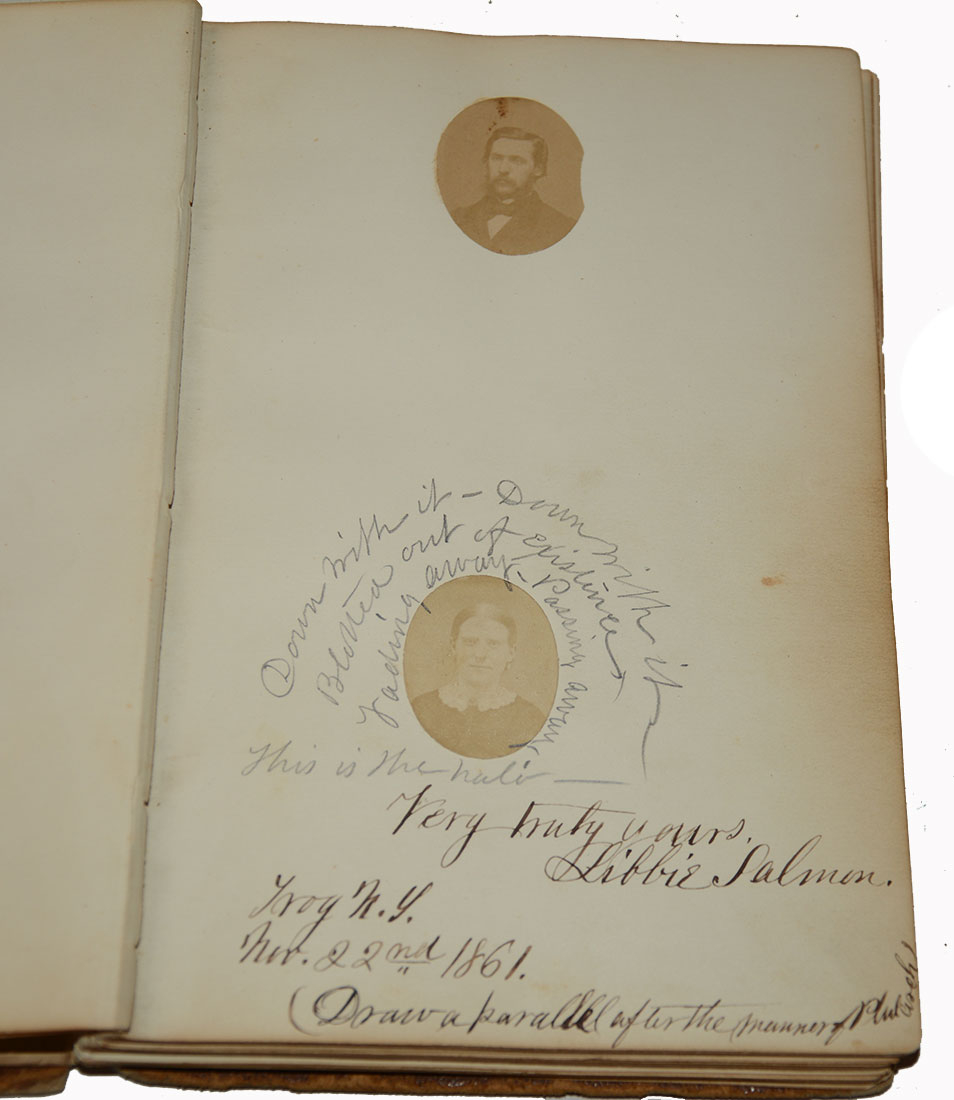 Down with it – Down with it –
Blotted out of existence
Fading away – Passing away,
This is the halo —
Very truly yours.
Libbie Salmon.
Troy N.Y.
Nov. 22nd 1861.
(Draw a parallel after the manner of Plutarch)